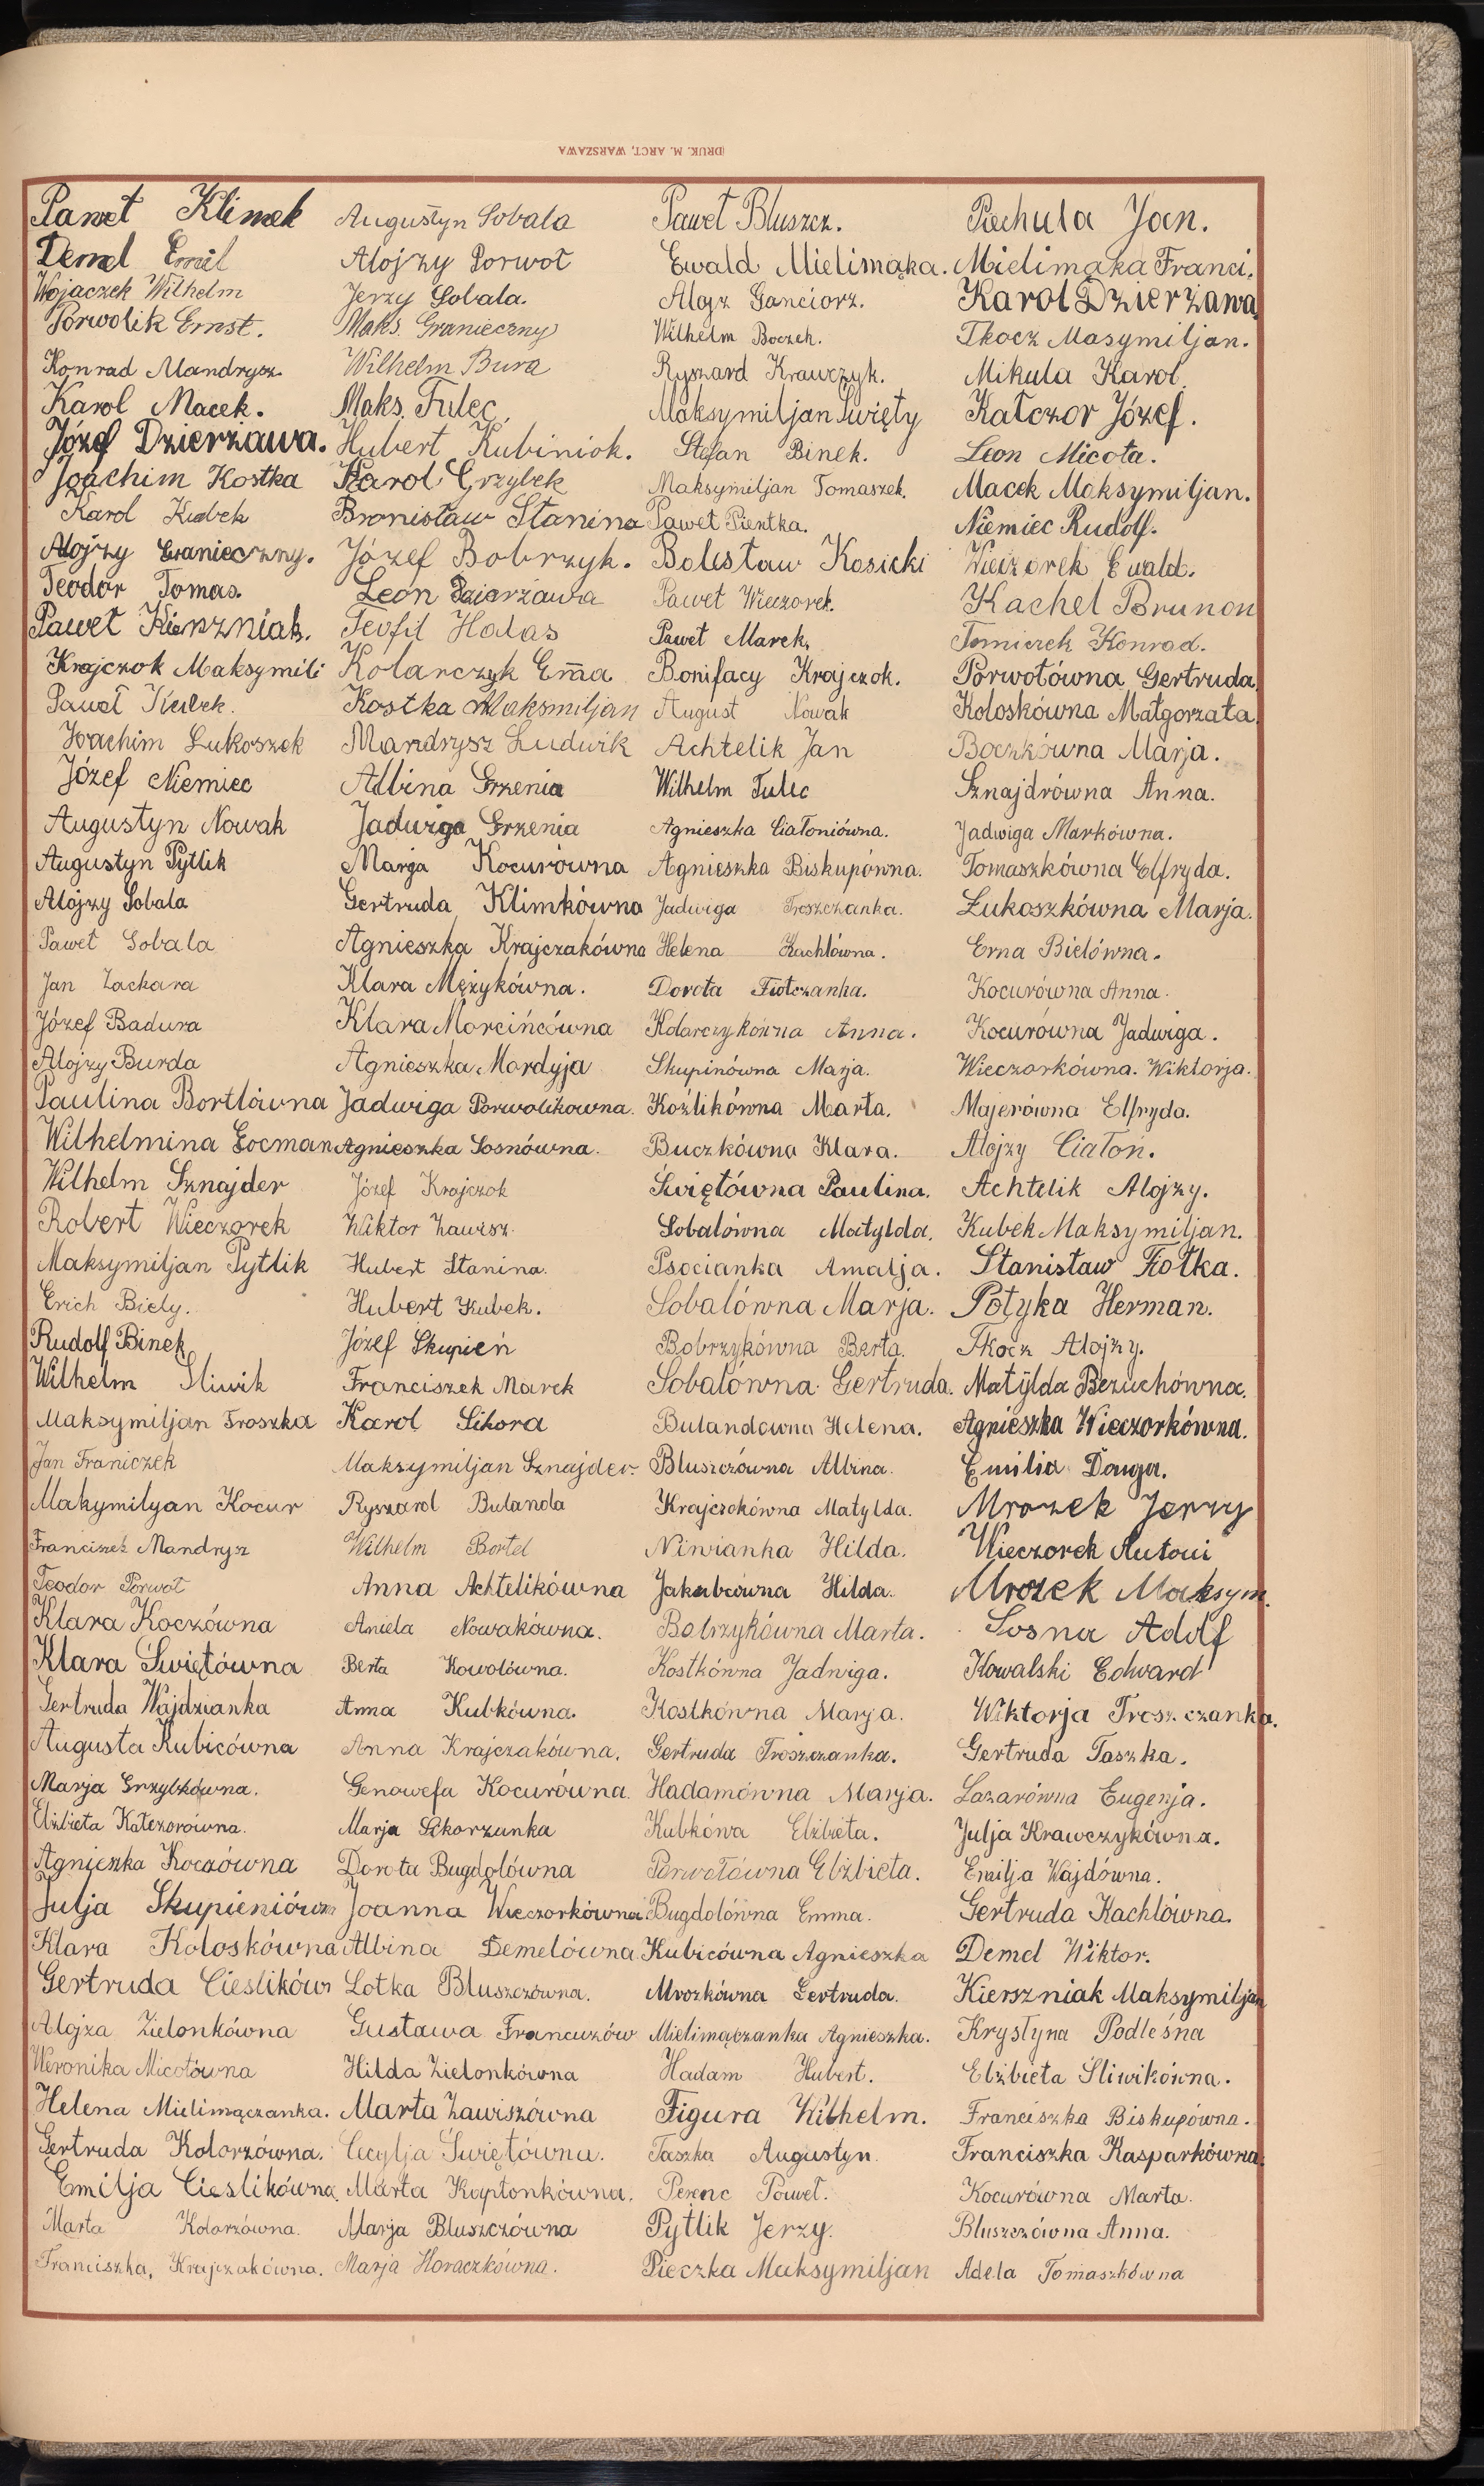 (DRUK. M. ARCT, WARSZAWA
Paweł Klimek
Demel Emil
Wojaczek Wilhelm
Porwolik Ernst.
Konrad Mandrysz
Karol Macek.
Józef Dzierżawa.
Joachim Kostka
Karol Kubek
Alojzy Granieczny.
Teodor Tomas.
Paweł Kierszniak.
Krajczok Maksymili
Paweł Kubek.
Joachim Łukoszek
Józef Niemiec
Augustyn Nowak
Augustyn Pytlik
Alojzy Sobala
Paweł Sobala
Jan Zackara
Józef Badura
Alojzy Burda
Paulina Bortlówna
Wilhelmina Gocman
Wilhelm Sznajder
Robert Wieczorek
Maksymiljan Pytlik
Erich Biely.
Rudolf Binek
Wilhelm Śliwik
Maksymiljan Troszka
Jan Franiczek
Makymilyan Kocur
Franciszek Mandrysz
Teodor Porwoł
Klara Koczówna
Klara Świętówna
Gertruda Wajdzianka
Augusta Kubicówna
Marja Grzybkówna.
Elżbieta Kałczorówna.
Agnieszka Koczówna
Julja Skupieniówn
Klara Koloskówna
Gertruda Cieslikówn
Alojza Zielonkówna
Weronika Micołówna
Helena Mielimączanka.
Gertruda Kolorzówna.
Emilja Cieslikówna
Marta Kolorzówna.
Franciszka, Krajczakówna.
Augustyn Sobala
Alojzy Porwoł
Jerzy Sobala.
Maks. Granieczny
Wilhelm Bura
Maks. Tulec,
Hubert Kubiniok.
Karol Grzybek
Bronisław Stanina
Józef Bobrzyk.
Leon Dzierżawa
Teofil Halas
Kolarczyk Ema
Kostka Maksmiljan
Mandrysz Ludwik
Albina Grzenia
Jadwiga Grzenia
Marja Kocurówna
Gertruda Klimkówna
Agnieszka Krajczakówna
Klara Mężykówna.
Klara Marcińcówna
Agnieszka Mardyja
Jadwiga Porwolikowna.
Agnieszka Sosnówna.
Józef Krajczok
Wiktor Zawisz.
Hubert Stanina.
Hubert Kubek.
Józef Skupień
Franciszek Marek
Karol Sikora
Maksymiljan Sznajder.
Ryszard Bulanda
Wilhelm Bortel
Anna Achtelikówna
Aniela Nowakówna.
Berta Kowolówna.
Anna Kubkówna.
Anna Krajczakówna.
Genowefa Kocurówna.
Marja Sikorzanka
Dorota Bugdolówna
Joanna Wieczorkówna
Albina Demelówna
Lotka Bluszczówna.
Gustawa Francuzów
Hilda Zielonkówna
Marta Zawiszówna
Cecylja Świętówna.
Marta Kaptonkówna.
Marja Bluszczówna
Marja Horaczkówna.
Paweł Bluszcz.
Ewald Mielimąka.
Alojz Ganciorz.
Wilhelm Boczek.
Ryszard Krawczyk.
Maksymiljan Święty
Stefan Binek.
Maksymiljan Tomaszek.
Paweł Pientka.
Bolesław Kosicki
Paweł Wieczorek.
Paweł Marek,
Bonifacy Krajczok.
August Nowak
Achtelik Jan
Wilhelm Tulec
Agnieszka Ciałoniówna.
Agnieszka Biskupówna.
Jadwiga Troszczanka.
Helena Kachlówna.
Dorota Fiołczanka.
Kolarczykówna Anna.
Skupinówna Marja.
Koźlikówna Marta.
Buczkówna Klara.
Świętówna Paulina.
Sobalówna Matylda.
Psocianka Amalja.
Sobalówna Marja.
Bobrzykówna Berta.
Sobalówna Gertruda.
Bulandówna Helena.
Bluszczówna Albina.
Krajczokówna Matylda.
Niwianka Hilda.
Jakubcówna Hilda.
Bobrzykówna Marta.
Kostkówna Jadwiga.
Kostkówna Marja.
Gertruda Troszczanka.
Hadamówna Marja.
Kubkówa Elżbieta.
Porwołówna Elżbieta.
Bugdolówna Emma.
Kubicówna Agnieszka
Mrozkówna Gertruda.
Mielimączanka Agnieszka.
Hadam Hubert.
Figura Wilhelm.
Taszka Augustyn.
Perenc Paweł.
Pytlik Jerzy.
Pieczka Maksymiljan
Piechula Jan.
Mielimąka Franci.
Karol Dzierżawa
Tkocz Masymiljan.
Mikula Karol
Kałczor Józef.
Leon Micoła.
Macek Maksymiljan.
Niemiec Rudolf.
Wieczorek Ewald.
Kachel Brunon
Tomiczek Konrad.
Porwołówna Gertruda
Koloskówna Małgorzata.
Boczkówna Marja.
Sznajdrówna Anna.
Jadwiga Markówna.
Tomaszkówna Elfryda.
Łukoszkówna Marja.
Erna Bielówna.
Kocurówna Anna.
Kocurówna Jadwiga.
Wieczorkówna. Wiktorja.
Majerówna Elfryda.
Alojzy Ciałoń.
Achtelik Alojzy.
Kubek Maksymiljan.
Stanisław Fiołka.
Potyka Herman.
Tkocz Alojzy.
Matylda Bezuchówna.
Agnieszka Wieczorkówna.
Emilia Dauga.
Mrozek Jerzy
Wieczorek Antoni
Mrozek Maksym.
Sosna Adolf
Kowalski Edward
Wiktorja Troszczanka.
Gertruda Taszka.
Lazarówna Eugenja.
Julja Krawczykówna.
Emilja Wajdówna.
Gertruda Kachlówna.
Demel Wiktor.
Kierszniak Maksymiljan
Krystyna Podleśna
Elżbieta Śliwikówna.
Franciszka Biskupówna.
Franciszka Kasparkówna.
Kocurówna Marta.
Bluszczówna Anna.
Adela Tomaszkówna